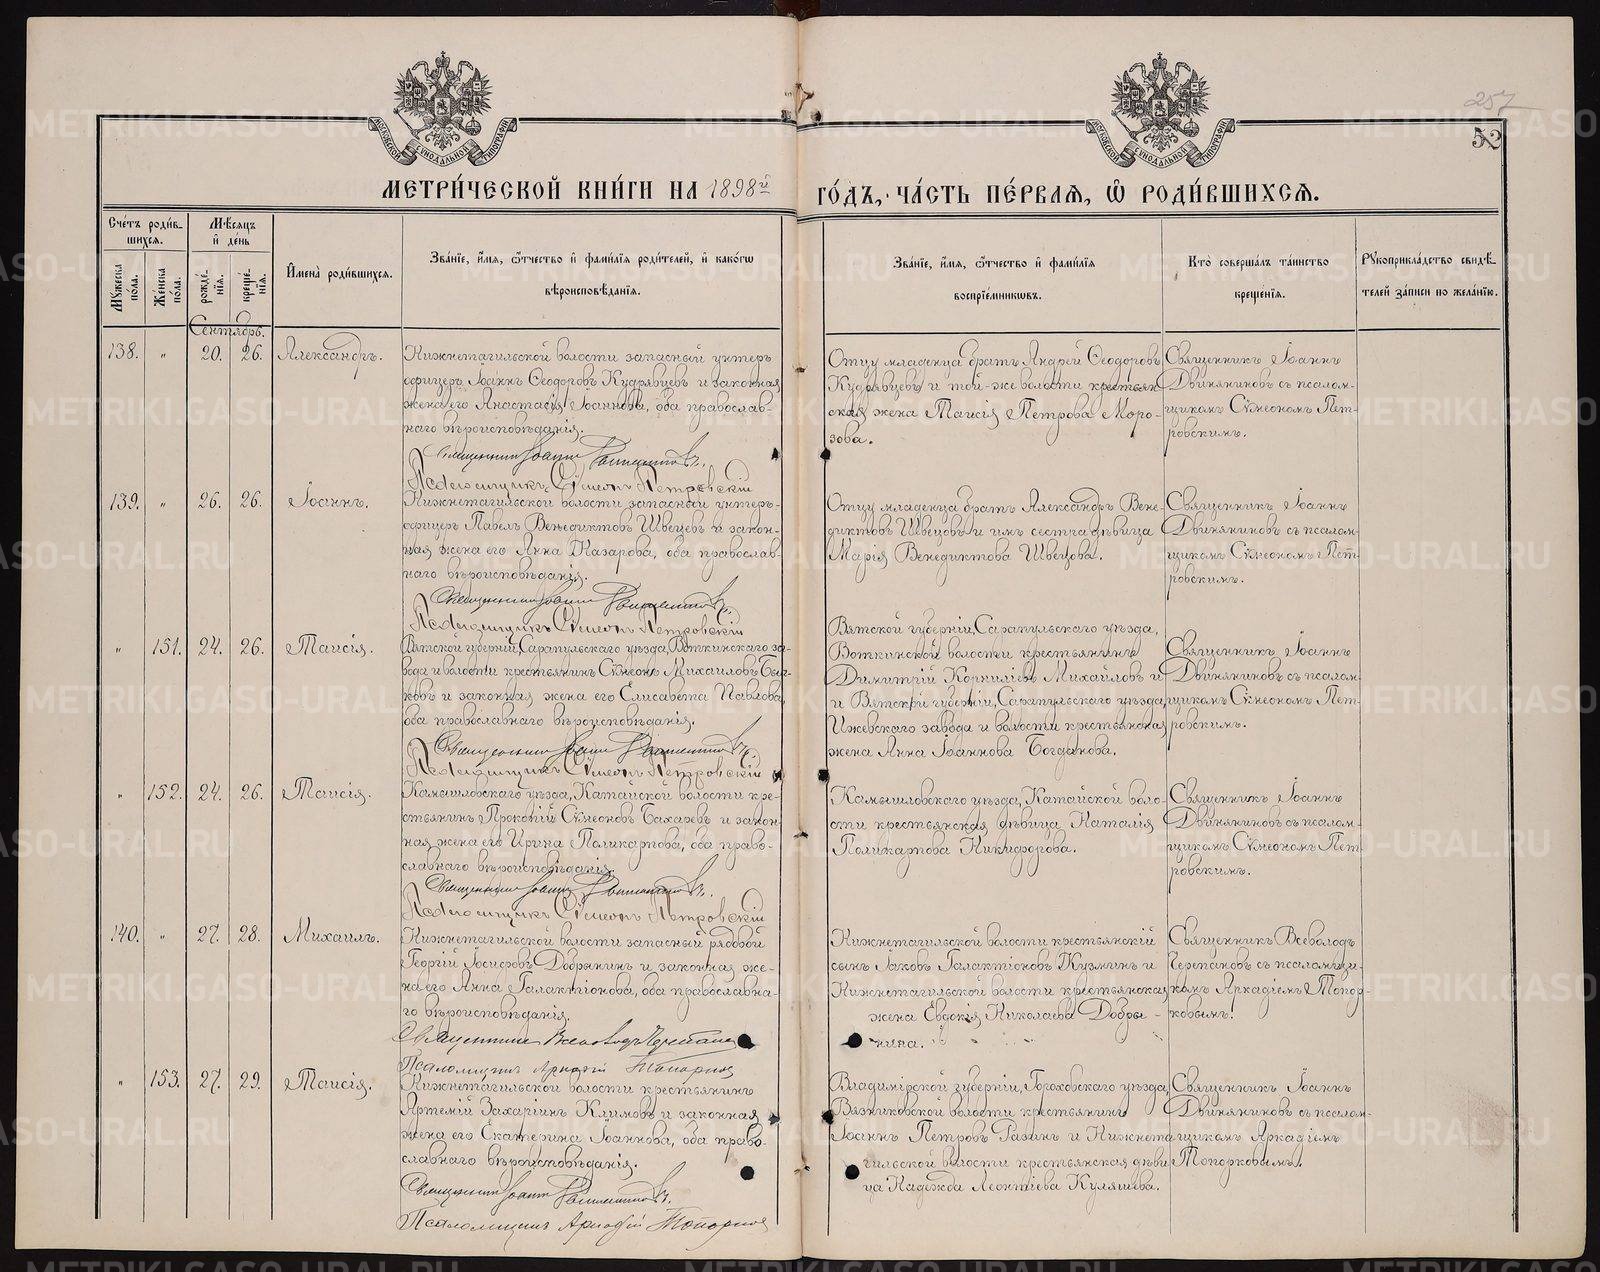 257
52
МОСКОВСКОЙ СѴНОДАЛЬНОЙ ТИПОГРАФІИ
МОСКОВСКОЙ СѴНОДАЛЬНОЙ ТИПОГРАФІИ
МЕТРИ́ЧЕСКОЙ КНИ́ГИ НА 1898й ГО́ДЪ, ЧА́СТЬ ПЕ́РВАѦ, Ѡ҆ РОДИ́ВШИХСѦ.
Сче́тъ роди́вшихсѧ.
Мꙋ́жеска по́ла.
Же́нска по́ла.
Мѣ́сѧцъ и҆ де́нь
рожде́нїѧ.
креще́нїѧ.
И҆мена̀ роди́вшихсѧ.
Зва́нїе, и҆́мѧ, ѻ҆́тчество и҆ фами́лїѧ роди́телей, и҆ како́гѡ
вѣроисповѣ́данїѧ.
Зва́нїе, и҆́мѧ, ѻ҆́тчество и҆ фами́лїѧ
воспрїе́мникѡвъ.
Кто̀ соверша́лъ та́инство
креще́нїѧ.
Рꙋкоприкла́дство свидѣ́-
телей за́писи по жела́нїю.
Сентябрь.
138. „ 20. 26. Александръ.
Нижнетагильской волости запасный унтеръ
офицеръ Іоаннъ Ѳеодоровъ Кудрявцевъ и законная
жена его Анастасія Іоаннова, оба православ-
наго вѣроисповѣданія.
Священникъ Іоаннъ Двиняниновъ.
Псаломщикъ Сѵмеонъ Петровскій
Отцу младенца братъ Андрей Ѳеодоровъ
Кудрявцевъ и той-же волости крестьян
ская жена Таисія Петрова Моро-
зова.
Священникъ Іоаннъ
Двиняниновъ съ псалом-
щикомъ Сѵмеономъ Пет-
ровскимъ.
139. „ 26. 26. Іоаннъ.
Нижнетагильской волости запасный унтеръ-
офицеръ Павелъ Венедиктовъ Швецовъ и закон-
ная жена его Анна Назарова, оба православ-
наго вѣроисповѣданія.
Священникъ Іоаннъ Двиняниновъ.
Псаломщикъ Сѵмеонъ Петровскій
Отцу младенца братъ Александръ Вене-
диктовъ Швецовъ и имъ сестра дѣвица
Марія Венедиктова Швецова.
Священникъ Іоаннъ
Двиняниновъ съ псалом-
щикомъ Сѵмеономъ Пет-
ровскимъ.
„ 151. 24. 26. Таисія.
Вятской губерніи, Сарапульскаго уѣзда, Воткинскаго за-
вода и волости крестьянинъ Сѵмеонъ Михаиловъ Бы-
ковъ и законная жена его Елисавета Павлова,
оба православнаго вѣроисповѣданія.
Священникъ Іоаннъ Двиняниновъ.
Псаломщикъ Сѵмеонъ Петровскій
Вятской губерніи, Сарапульскаго уѣзда,
Воткинской волости крестьянинъ
Димитрій Корниліевъ Михайловъ и
и Вятской губерніи, Сарапульскаго уѣзда,
Ижевскаго завода и волости крестьянская
жена Анна Іоаннова Богданова.
Священникъ Іоаннъ
Двиняниновъ съ псалом-
щикомъ Сѵмеономъ Пет-
ровскимъ.
„ 152. 24. 26. Таисія.
Камышловскаго уѣзда, Катайской волости кре-
стьянинъ Прокопій Сѵмеоновъ Бахаревъ и закон-
ная жена его Ирина Поликарпова, оба право-
славнаго вѣроисповѣданія.
Священникъ Іоаннъ Двиняниновъ.
Псаломщикъ Сѵмеонъ Петровскій
Камышловскаго уѣзда, Катайской воло-
сти крестьянская дѣвица Наталія
Поликарпова Никифорова.
Священникъ Іоаннъ
Двиняниновъ съ псалом-
щикомъ Сѵмеономъ Пет-
ровскимъ.
140. „ 27. 28. Михаилъ.
Нижнетагильской волости запасный рядовой
Георгій Іосифовъ Добрынинъ и законная же-
на его Анна Галактіонова, оба православна-
го вѣроисповѣданія.
Священникъ Всеволодъ Черепановъ
Псаломщикъ Аркадій Топорковъ
Нижнетагильской волости крестьянскій
сынъ Іаковъ Галактіоновъ Кузминъ и
Нижнетагильской волости крестьянская
жена Евдокія Николаева Добры-
нина.
Священникъ Всеволодъ
Черепановъ съ псаломщи-
комъ Аркадіемъ Топор-
ковымъ.
„ 153. 27. 29. Таисія.
Нижнетагильской волости крестьянинъ
Артемій Захаріинъ Климовъ и законная
жена его Екатерина Іоаннова, оба право-
славнаго вѣроисповѣданія.
Священникъ Іоаннъ Двиняниновъ.
Псаломщикъ Аркадій Топорковъ
Владимірской губерніи, Гороховскаго уѣзда,
Вязниковской волости крестьянинъ
Іоаннъ Петровъ Разинъ и Нижнета
гильской волости крестьянская дѣви
ца Надежда Леонтіева Куляшева.
Священникъ Іоаннъ
Двиняниновъ съ псалом-
щикомъ Аркадіемъ
Топорковымъ.
METRIKI.GASO-URAL.RU